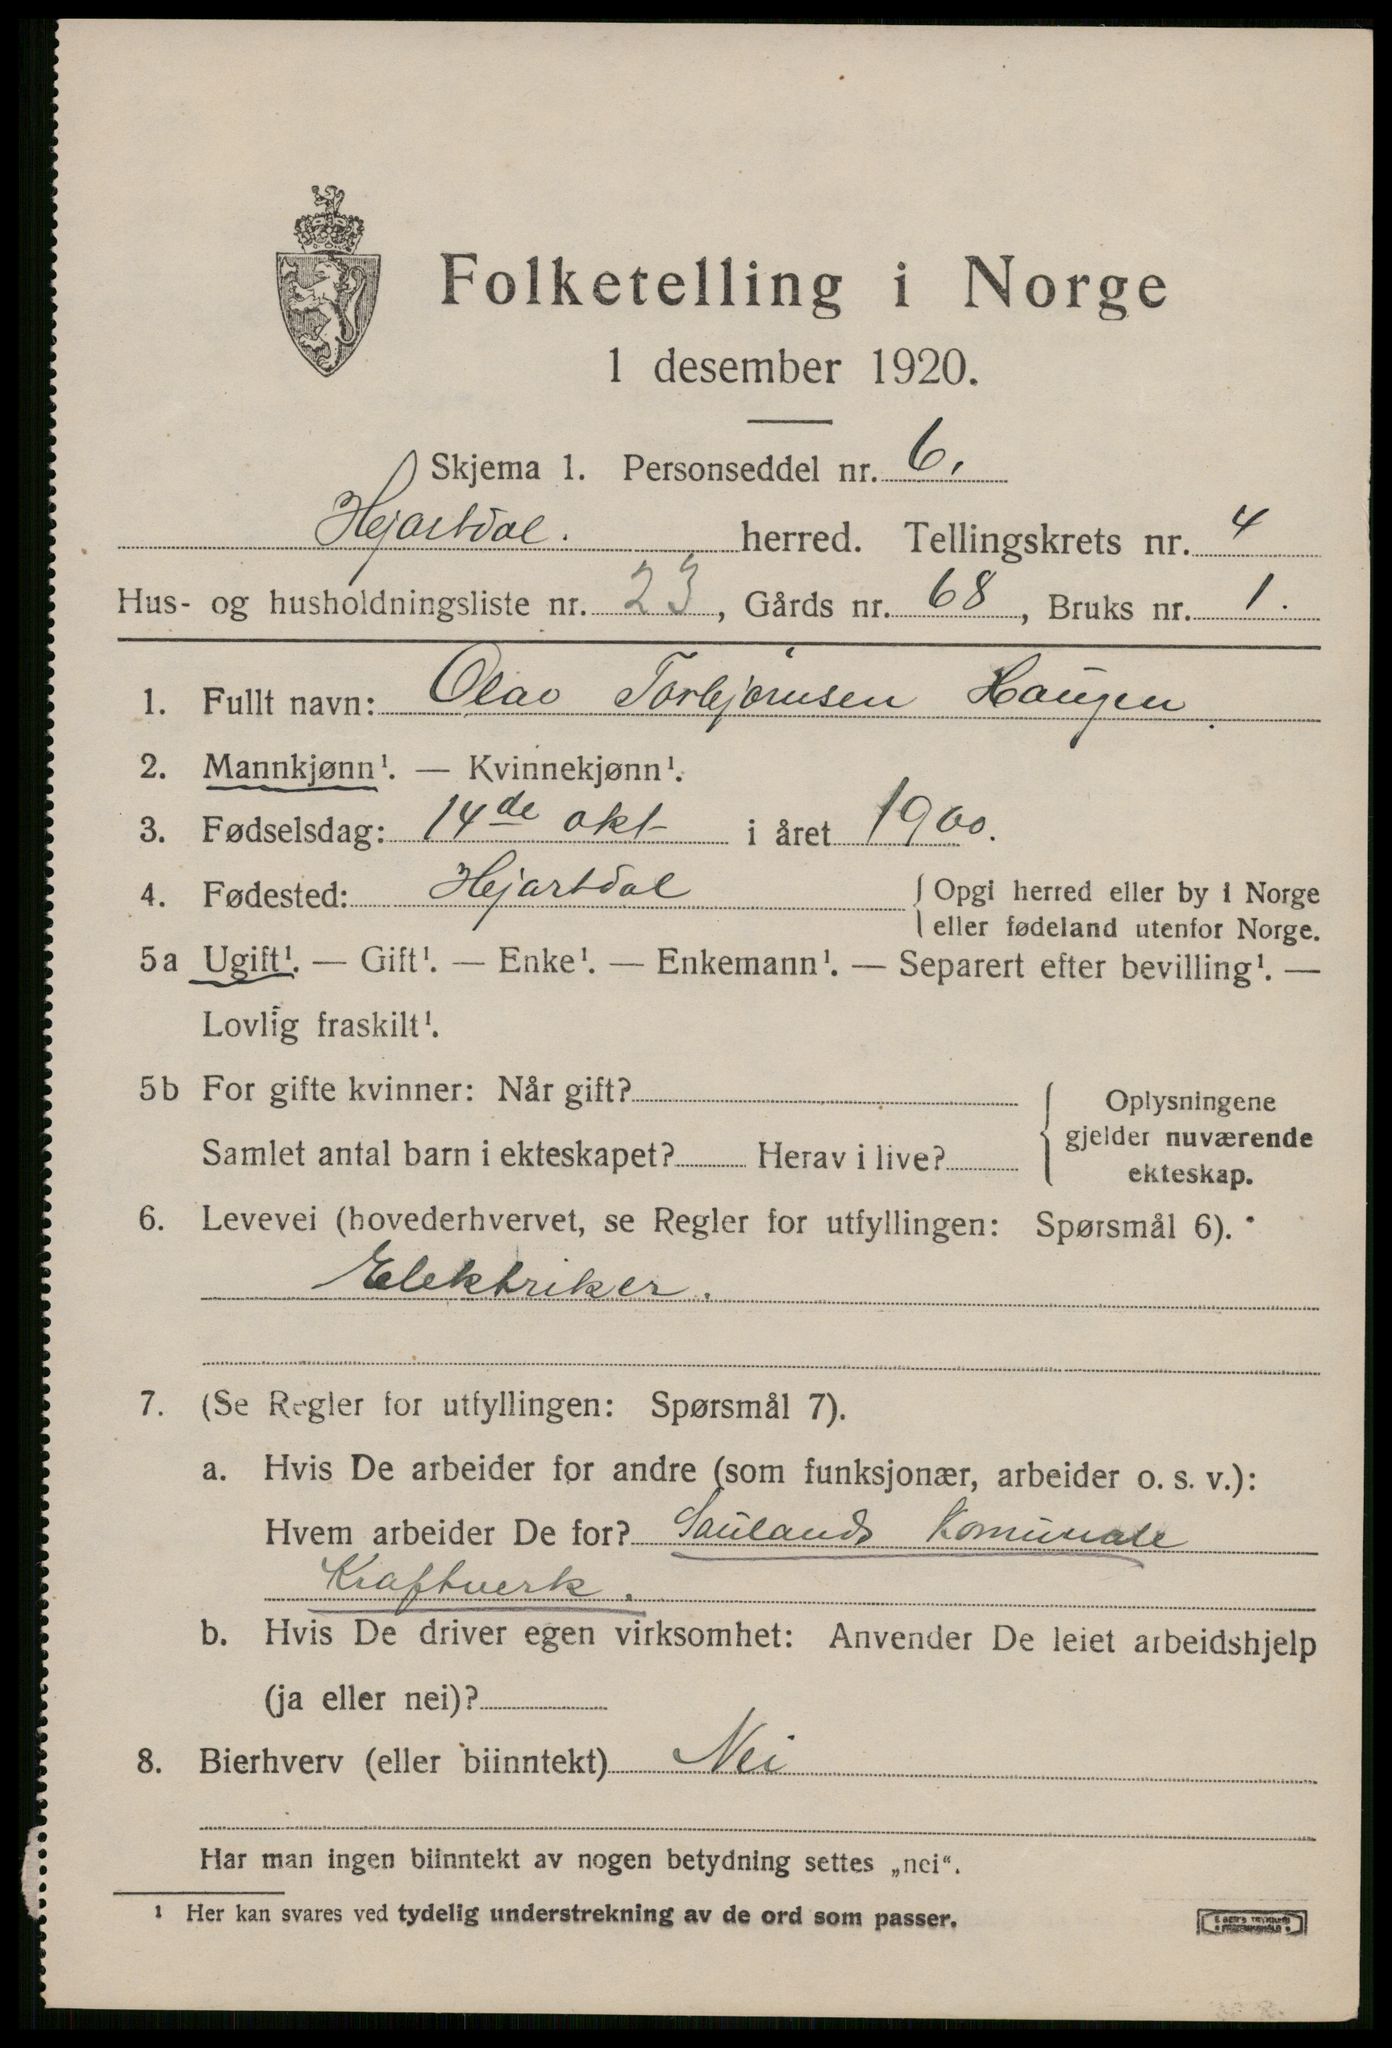 Folketelling i Norge
1 desember 1920.
Skjema 1. Personseddel nr. 6.
Hejartdal. herred. Tellingskrets nr. 4
Hus- og husholdningsliste nr. 23, Gårds nr. 68, Bruks nr. 1.
1. Fullt navn: Olav Torbjørnsen Haugen.
2. Mannkjønn¹. — Kvinnekjønn¹.
3. Fødselsdag: 14de okt i året 1900.
4. Fødested: Hejartdal { Opgi herred eller by i Norge
eller fødeland utenfor Norge.
5a Ugift¹. — Gift¹. — Enke¹. — Enkemann¹. — Separert efter bevilling¹. —
Lovlig fraskilt¹.
5b For gifte kvinner: Når gift?
Samlet antal barn i ekteskapet? Herav i live?
Oplysningene
gjelder nuværende
ekteskap.
6. Levevei (hovederhvervet, se Regler for utfyllingen: Spørsmål 6).
Elektriker.
7. (Se Regler for utfyllingen: Spørsmål 7).
a. Hvis De arbeider for andre (som funksjonær, arbeider o. s. v.):
Hvem arbeider De for? Saulands Komunale
Kraftverk.
b. Hvis De driver egen virksomhet: Anvender De leiet arbeidshjelp
(ja eller nei)?
8. Bierhverv (eller biinntekt) Nei
Har man ingen biinntekt av nogen betydning settes „nei“.
¹ Her kan svares ved tydelig understrekning av de ord som passer.